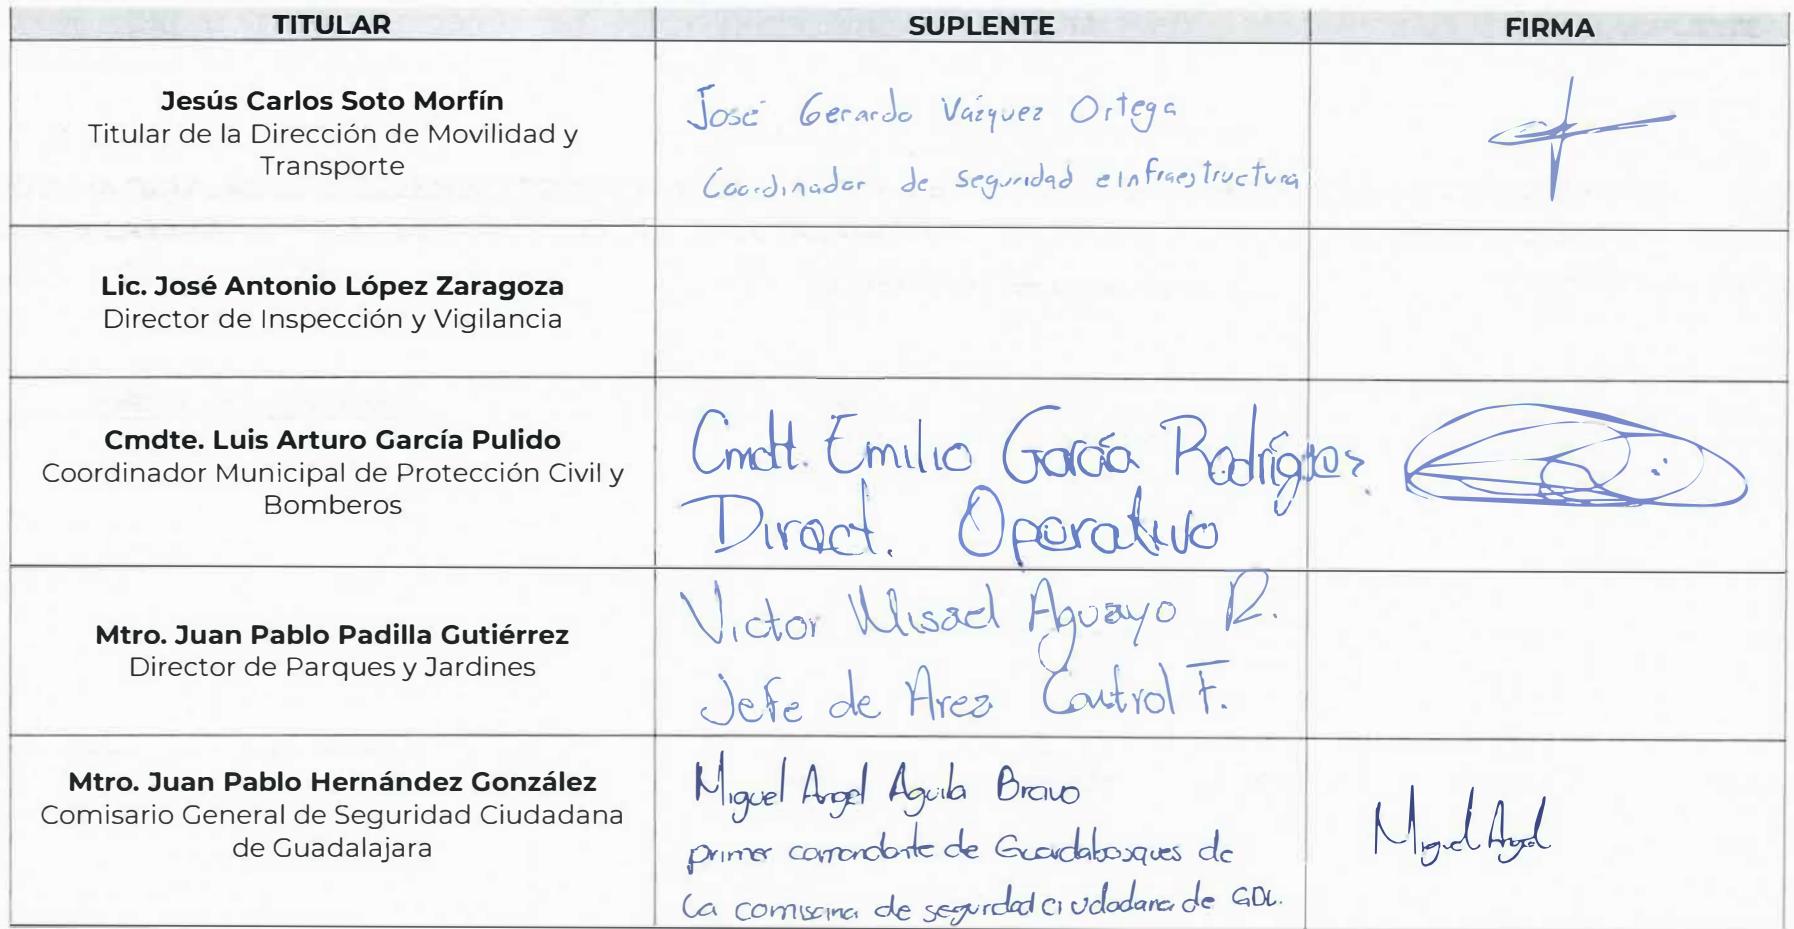 TITULAR SUPLENTE FIRMA
Jesús Carlos Soto Morfín
Titular de la Dirección de Movilidad y
Transporte
José Gerardo Vázquez Ortega
Coordinador de seguridad e infraestructura
Lic. José Antonio López Zaragoza
Director de Inspección y Vigilancia
Cmdte. Luis Arturo García Pulido
Coordinador Municipal de Protección Civil y
Bomberos
Cmdt. Emilio García Rodríguez
Direct. Operativo
Mtro. Juan Pablo Padilla Gutiérrez
Director de Parques y Jardines
Victor Misael Aguayo R.
Jefe de Area Control F.
Mtro. Juan Pablo Hernández González
Comisario General de Seguridad Ciudadana
de Guadalajara
Miguel Angel Aguila Bravo
primer comandante de Guardabosques de
la comisaria de seguridad ciudadana de GDL.
Miguel Angel